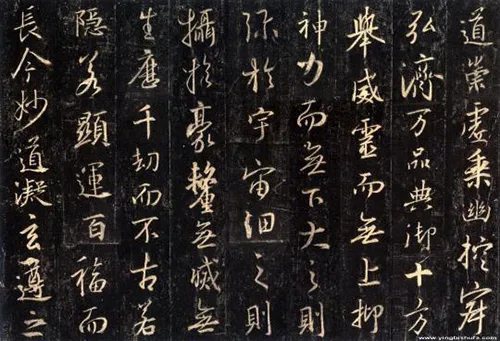 道崇虛乘幽控寂
弘濟万品典御十方
舉威靈而無上抑
神力而無下大之則
弥於宇宙細之則
攝於豪釐無滅無
生歷千劫而不古若
隱若顯運百福而
長今妙道凝玄遵之
www.yingbishufa.com